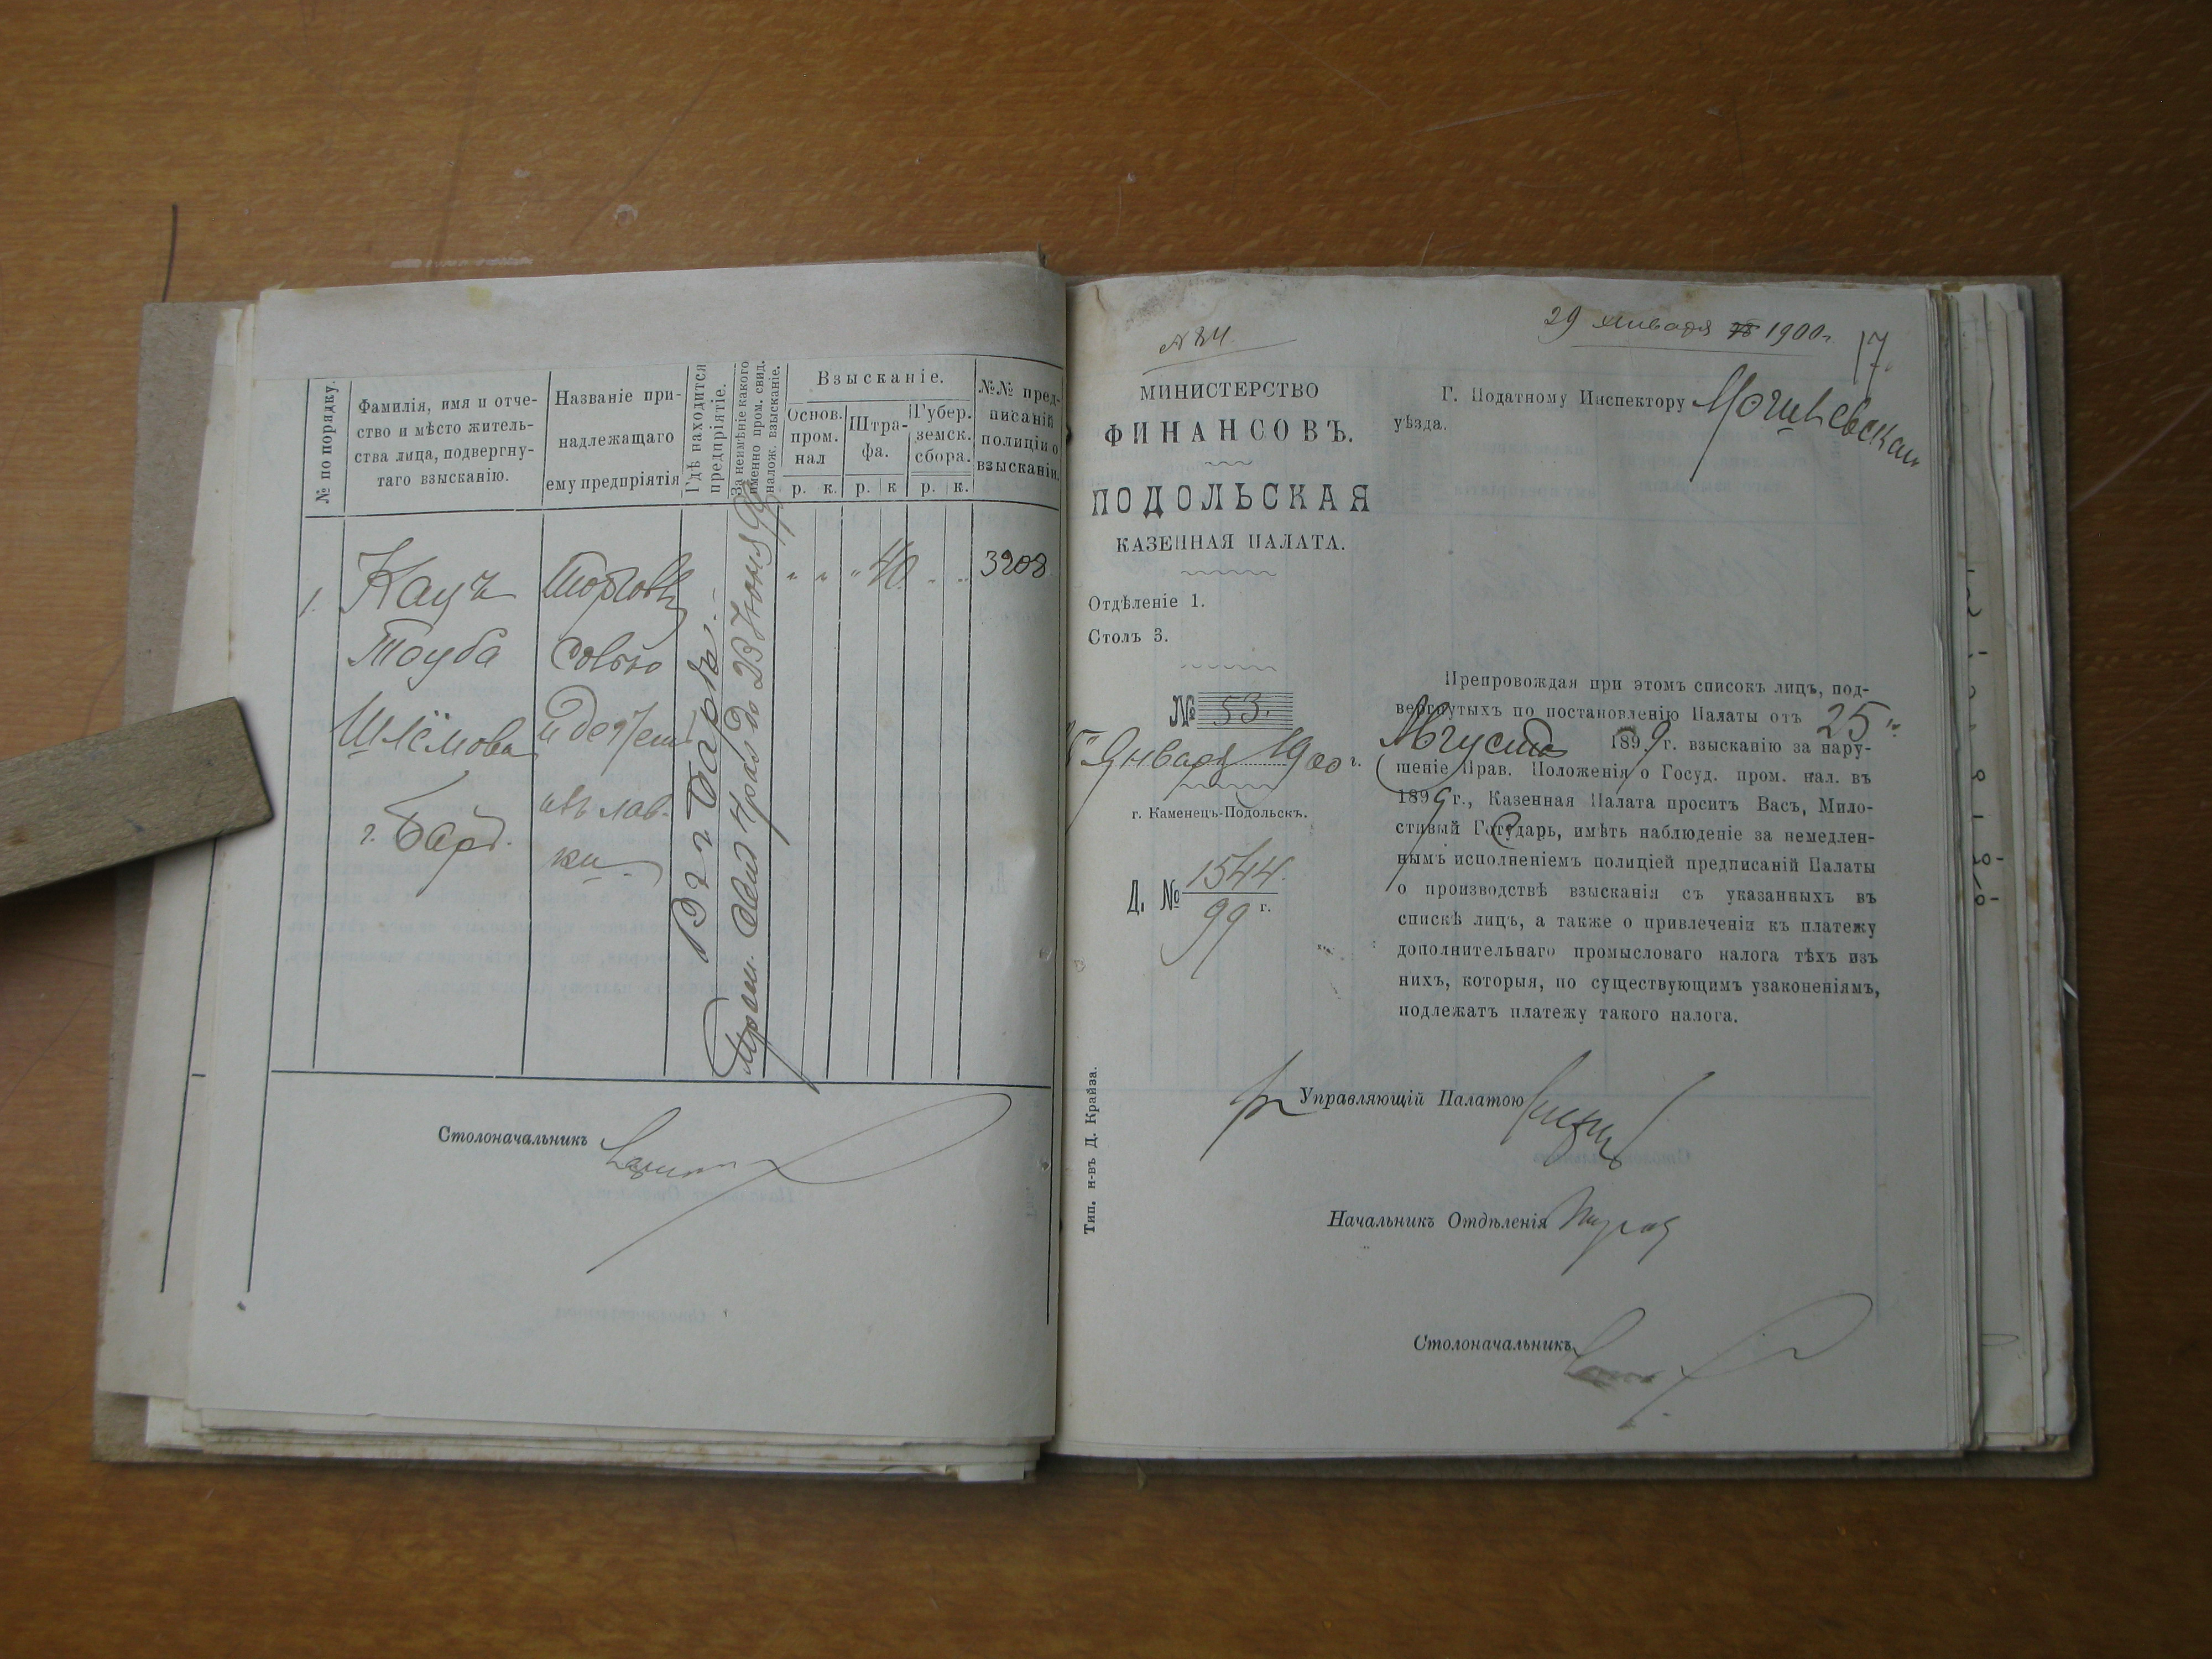 № по порядку.
Фамилія, имя и отче-
ство и мѣсто житель-
ства лица, подвергну-
таго взысканію.
Названіе при-
надлежащаго
ему предпріятія
Гдѣ находится
предпріятіе.
За неимѣніе какого
именно пром. свид.
налож. взысканіе.
Взысканіе.
Основ.
пром.
нал
Штра-
фа.
Губер.
земск.
сбора.
р. к. р. к р. к.
№№ пред-
писаній
полиціи о
взысканіи.
1.
Кацъ
Тауба
Шлёмова
г. Бард.
торговля
солью
и дегтемъ
изъ лав-
ки
Въ г. Барѣ.
40
3208
Столоначальникъ
№ 84
29 января 1900 г.
17.
МИНИСТЕРСТВО
ФИНАНСОВЪ.
ПОДОЛЬСКАЯ
КАЗЕННАЯ ПАЛАТА.
Отдѣленіе 1.
Столъ 3.
№ 53.
Января 1900 г.
г. Каменецъ-Подольскъ.
Д. № 1544
99 г.
Тип. н-въ Д. Крайза.
Г. Податному Инспектору Могилевскаго
уѣзда.
Препровождая при этомъ списокъ лицъ, под-
вергнутыхъ по постановленію Палаты отъ 25
Августа 1899 г. взысканію за нару-
шеніе Прав. Положенія о Госуд. пром. нал. въ
1899 г., Казенная Палата проситъ Васъ, Мило-
стивый Государь, имѣть наблюденіе за немедлен-
нымъ исполненіемъ полиціей предписаній Палаты
о производствѣ взысканія съ указанныхъ въ
спискѣ лицъ, а также о привлеченіи къ платежу
дополнительнаго промысловаго налога тѣхъ изъ
нихъ, которыя, по существующимъ узаконеніямъ,
подлежатъ платежу такого налога.
Управляющій Палатою
Начальникъ Отдѣленія
Столоначальникъ